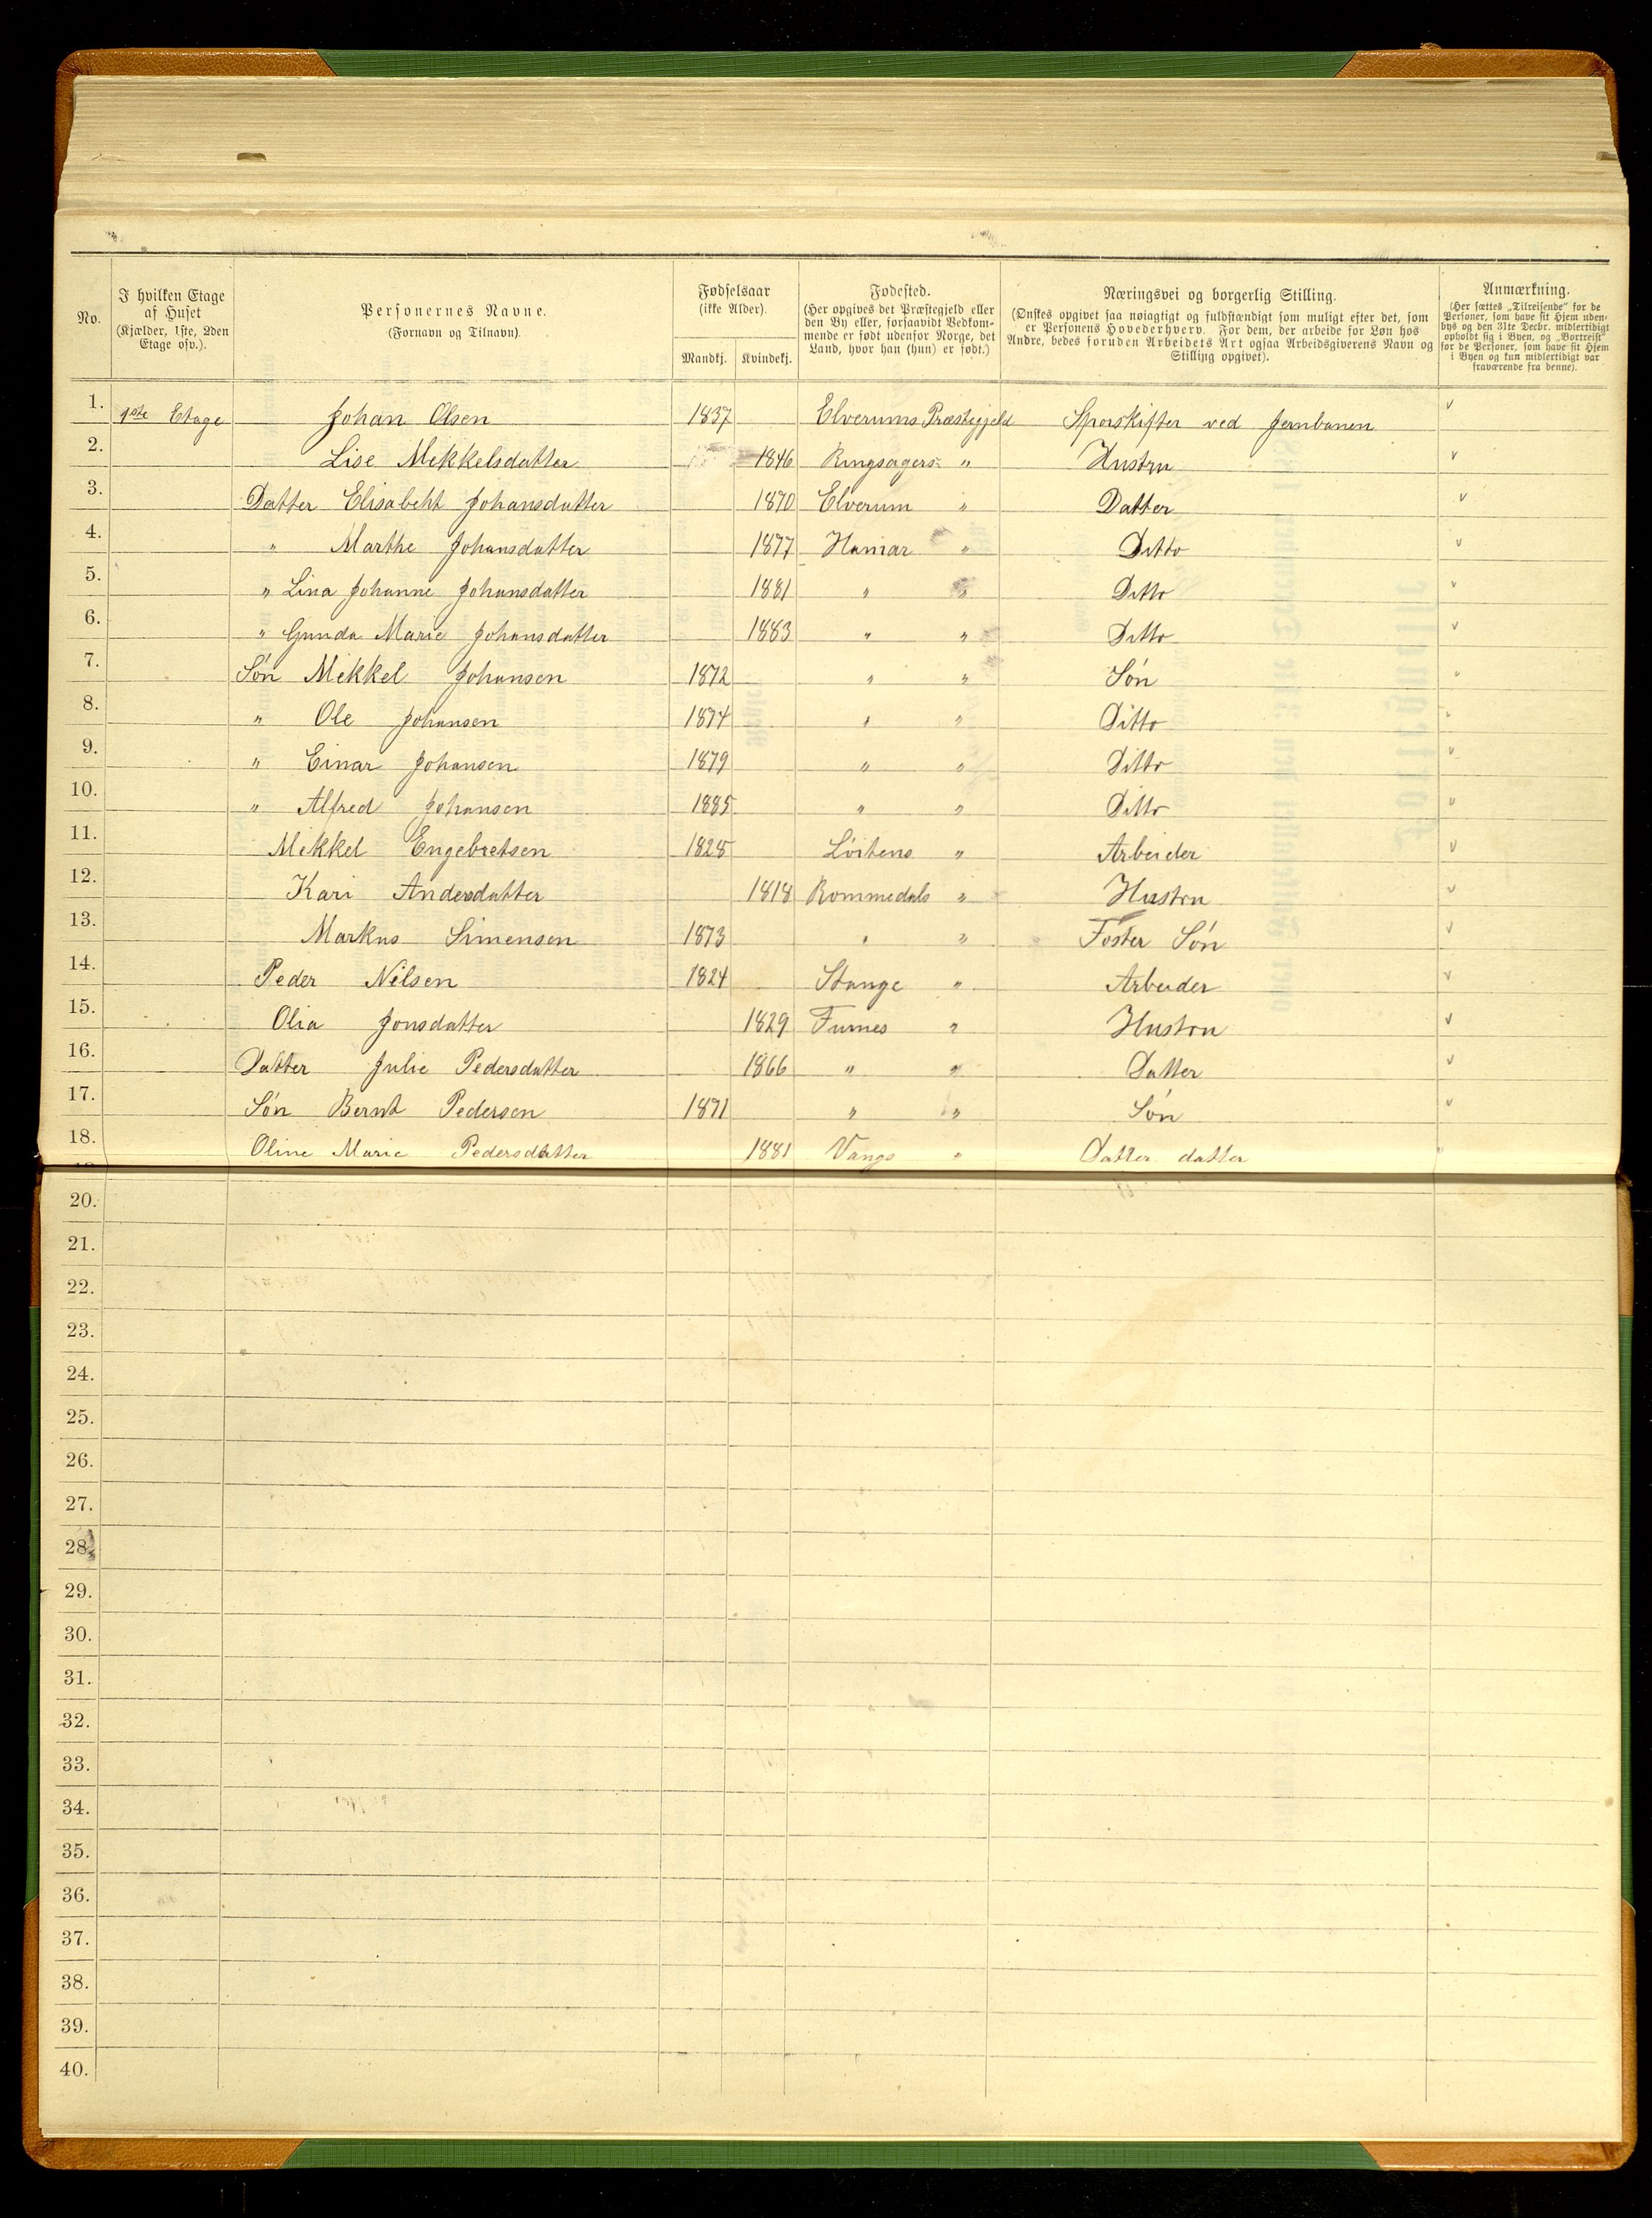 No.
I hvilken Etage af Huset (Kjælder, 1ste, 2den Etage osv.).
Personernes Navne. (Fornavn og Tilnavn).
Fødselsaar (ikke Alder).
Mandkj. Kvindekj.
Fødested. (Her opgives det Præstegjeld eller den By eller, forsaavidt Vedkommende er født udenfor Norge, det Land, hvor han (hun) er født.)
Næringsvei og borgerlig Stilling. (Ønskes opgivet saa nøiagtigt og fuldstændigt som muligt efter det, som er Personens Hovederhverv. For dem, der arbeide for Løn hos Andre, bedes foruden Arbeidets Art ogsaa Arbeidsgiverens Navn og Stilling opgivet).
Anmærkning. (Her sættes „Tilreisende“ for de Personer, som have sit Hjem udenbys og den 31te Decbr. midlertidigt opholdt sig i Byen, og „Bortreist“ for de Personer, som have sit Hjem i Byen og kun midlertidigt var fraværende fra denne).
1. 1ste Etage Johan Olsen 1837 Elverums Præstegjeld Sporskifter ved Jernbanen v
2. Lise Mekkelsdatter 1846 Ringsagers „ Hustru v
3. Datter Elisabeht Johansdatter 1870 Elverum „ Datter v
4. „ Marthe Johansdatter 1877 Hamar „ Ditto v
5. „ Lina Johanne Johansdatter 1881 „ „ Ditto v
6. „ Gunda Marie Johansdatter 1883 „ „ Ditto v
7. Søn Mekkel Johansen 1872 „ „ Søn v
8. „ Ole Johansen 1874 „ „ Ditto v
9. „ Einar Johansen 1879 „ „ Ditto v
10. „ Alfred Johansen 1885 „ „ Ditto v
11. Mikkel Engebretsen 1828 Løitens „ Arbeider v
12. Kari Andersdatter 1818 Rommedals „ Hustru v
13. Markus Simensen 1873 „ „ Foster Søn v
14. Peder Nilsen 1824 Stange „ Arbeider v
15. Olia Jonsdatter 1829 Furnes „ Hustru v
16. Datter Julie Pedersdatter 1866 „ „ Datter v
17. Søn Bernt Pedersen 1871 „ „ Søn v
18. Oline Marie Pedersdatter 1881 Vangs „ Datter datter
20.
21.
22.
23.
24.
25.
26.
27.
28.
29.
30.
31.
32.
33.
34.
35.
36.
37.
38.
39.
40.